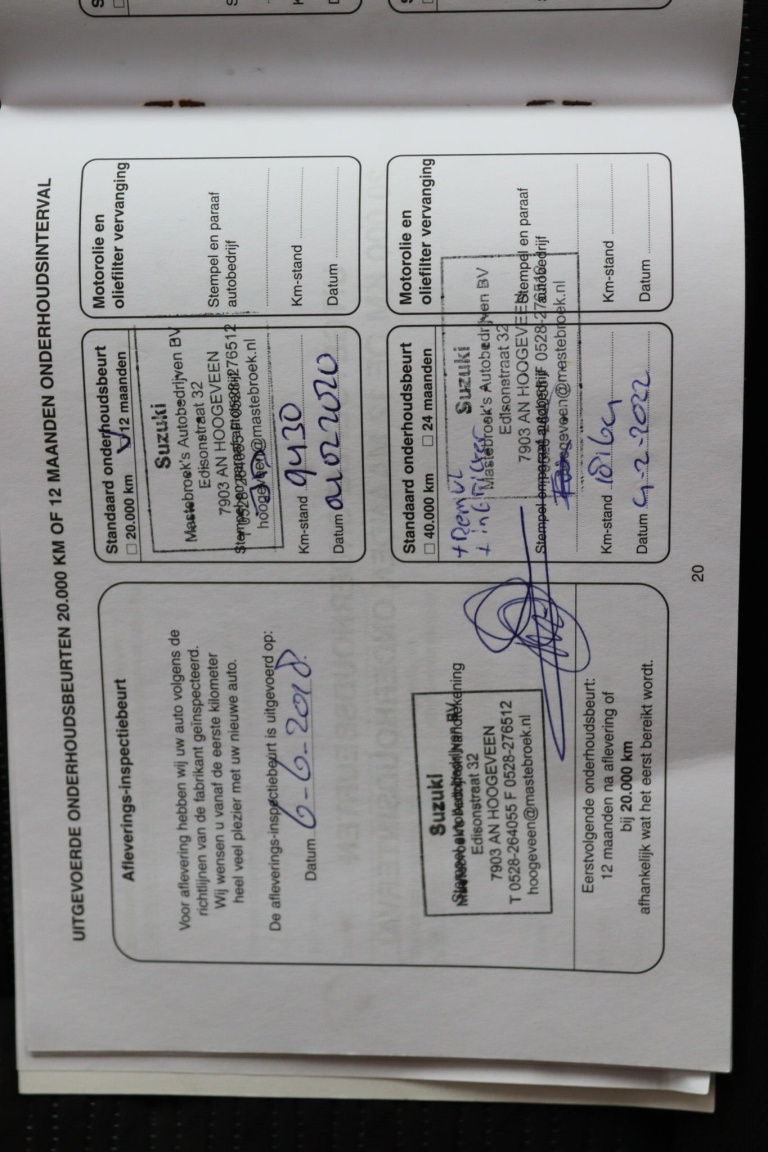 UITGEVOERDE ONDERHOUDSBEURTEN 20.000 KM OF 12 MAANDEN ONDERHOUDSINTERVAL
Afleverings-inspectiebeurt
Voor aflevering hebben wij uw auto volgens de
richtlijnen van de fabrikant geïnspecteerd.
Wij wensen u vanaf de eerste kilometer
heel veel plezier met uw nieuwe auto.
De afleverings-inspectiebeurt is uitgevoerd op:
Datum 6-6-2018
Suzuki
Mastebroek's Autobedrijven BV
Edisonstraat 32
7903 AN HOOGEVEEN
T 0528-264055 F 0528-276512
hoogeveen@mastebroek.nl
Eerstvolgende onderhoudsbeurt:
12 maanden na aflevering of
bij 20.000 km
afhankelijk wat het eerst bereikt wordt.
Standaard onderhoudsbeurt
20.000 km 12 maanden
Suzuki
Mastebroek's Autobedrijven BV
Edisonstraat 32
7903 AN HOOGEVEEN
T 0528-264055 F 0528-276512
hoogeveen@mastebroek.nl
Km-stand 9430
Datum 21022020
Motorolie en
oliefilter vervanging
Stempel en paraaf
autobedrijf
Km-stand
Datum
Standaard onderhoudsbeurt
40.000 km 24 maanden
+ Remvl
Suzuki
Mastebroek's Autobedrijven BV
Edisonstraat 32
7903 AN HOOGEVEEN
hoogeveen@mastebroek.nl
Km-stand
Datum 4-2-2022
Motorolie en
oliefilter vervanging
Stempel en paraaf
autobedrijf
Km-stand
Datum
20